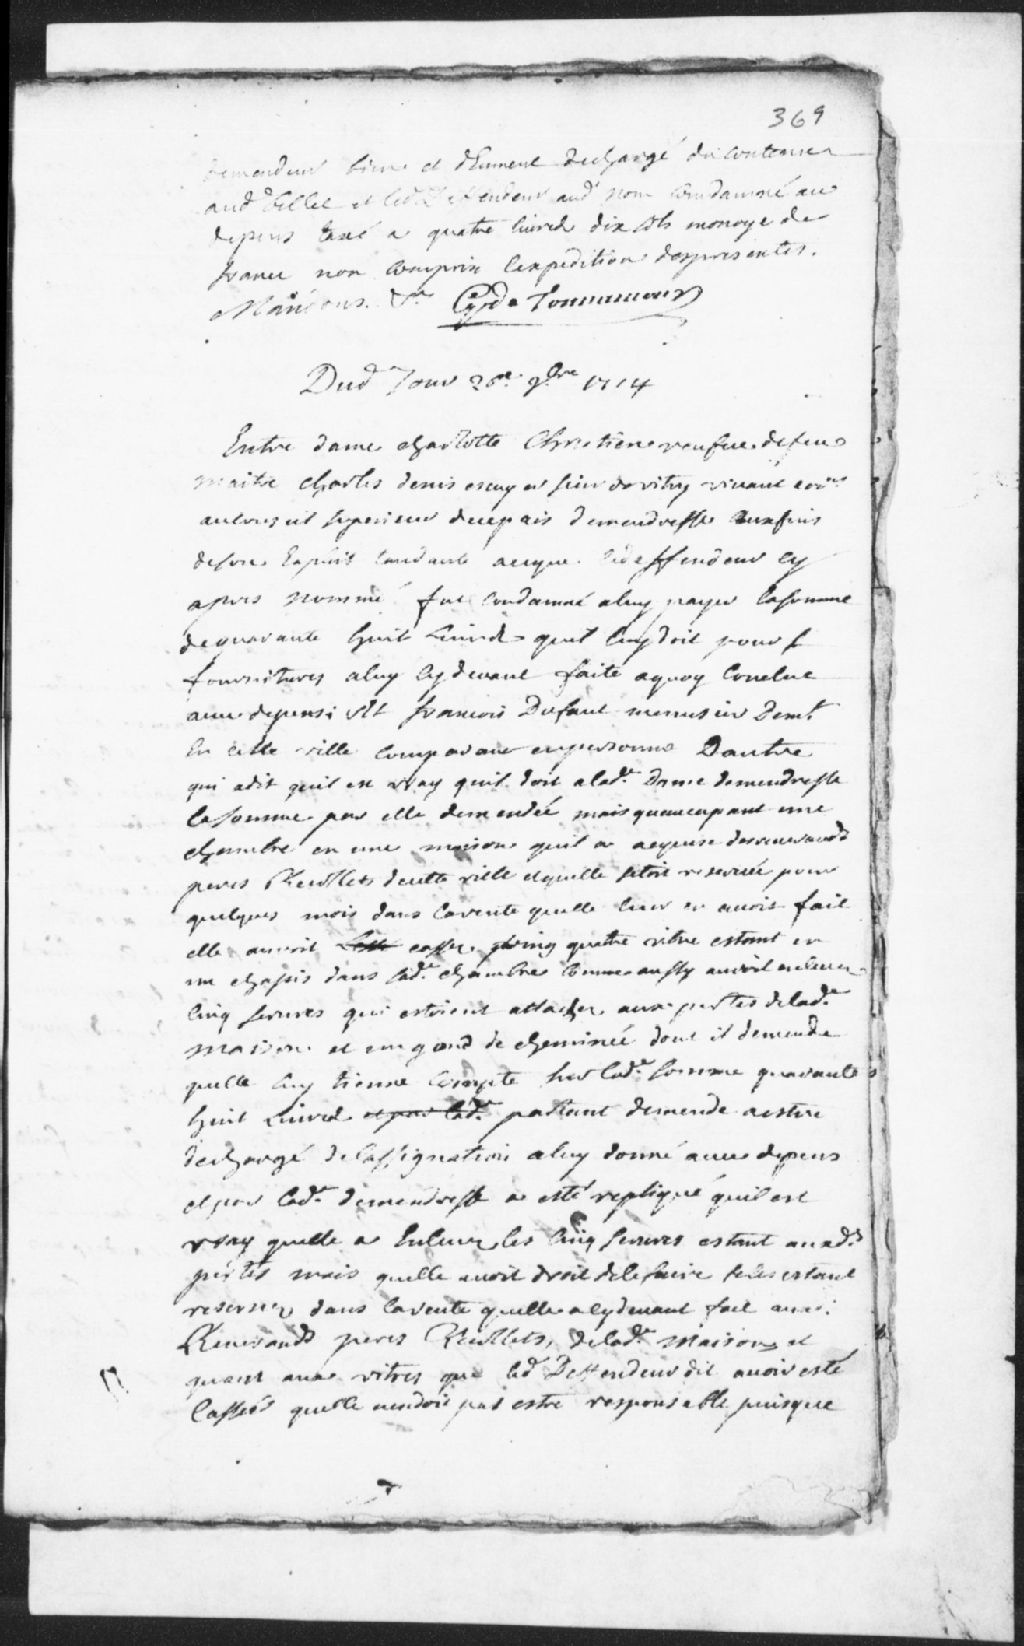 369
demandeur bien et duement dechargé du contenu
aud. billet et led. Deffendeur aud. nom Condamné au
depens taxé a quatre livres dix sols monoye de
france non compris l'expedition des presentes.
Mandons &a
Dud. Jour 20e 9bre 1714
Entre dame charlotte Chrestiene veufue de feu
maitre charles denis escuyer sieur de vitry vivant coner
au conseil superieur de ce pais demandresse aux fins
de son Exploit tandante a ce que le deffendeur cy
apres nommé fut Condamné a luy payer la somme
de quarante huit Livres quil luy doit pour
fournitures a luy cy devant faite a quoy Conclue
avec depens; Et francois Dufaut menusier demt
En cette ville comparant en personne D'autre
qui a dit quil est vray quil doit a lad. dame demandresse
la somme par elle demandée mais quaucupant une
chambre en une maison quil a acquise des reverands
peres Recollets de cette ville et quelle setoit reservée pour
quelques mois dans la vente quelle leur en avoit fait
elle auroit casse quatre vitre estant en
un chassis dans lad. chambre comme aussy auroit enlever
Cinq serures qui estoient attacher aux portes de lad.
maison et un gond de cheminée dont il demande
quelle luy tienne Compte sur lad. somme quarante
huit Livres et par lad. partant demande a estre
dechargé de l'assignation a luy donné avec depens
et par lad. demandresse a esté repliqué quil est
vray quelle a Enlever les Cinq serures estant auxd.
portes mais quelle avoit droit de le faire se les estant
reserver dans la vente quelle a cy devant fait aux
Reverands peres Recollets, de lad. maison, et
quant aux vitres que led. Deffendeur dit avoir esté
Cassées quelle n'en doit pas estre responsable puisque